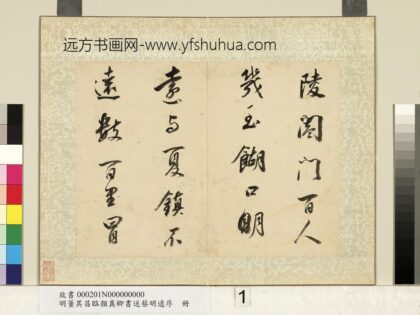 远方书画网-www.yfshuhua.com
陵闔門百人
幾至餬口明
遠与夏鎮不
遠數百里冒
故書 000201N000000000
明董其昌臨顏真卿書送蔡明遠序 冊
1